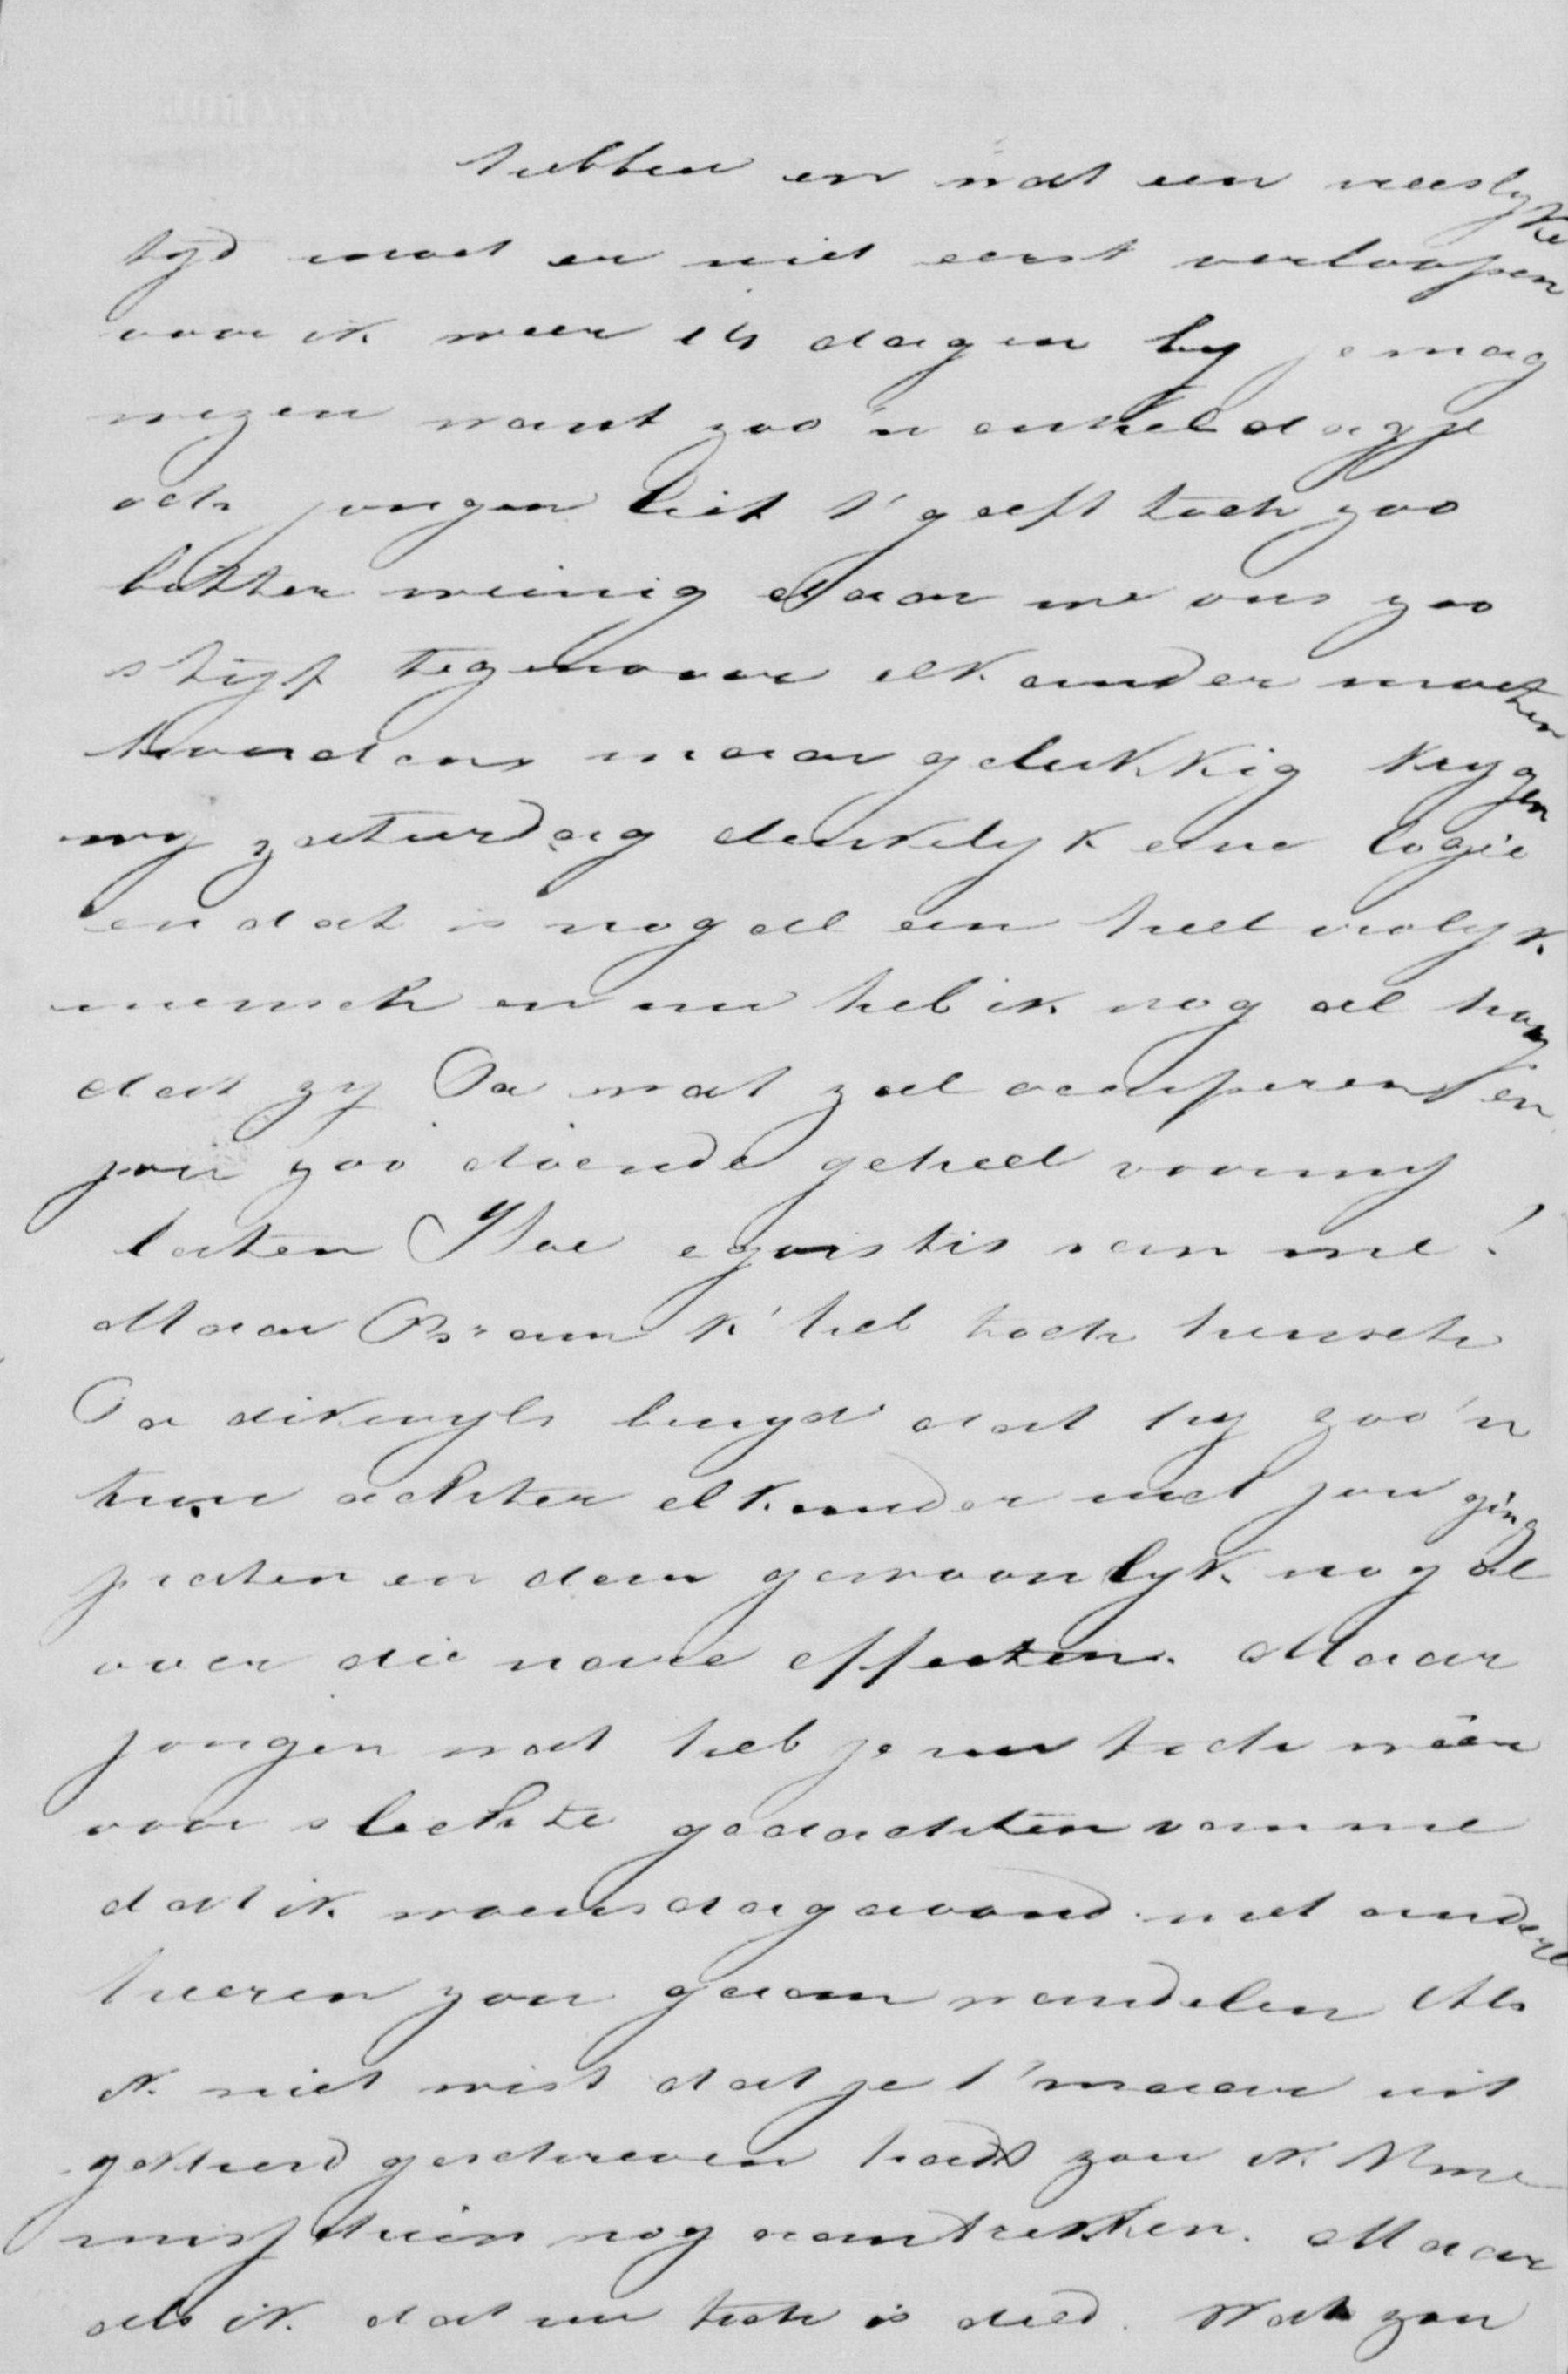 hebben en wat een vreeslyke
tyd moet er niet eerst verloopen
voor ik weer 14 dagen by je mag
wezen want zoo'n enkel dagje
och jongen lief t' geeft toch zoo
bitter weinig daar we ons zoo
styf tegenover elkander moeten
houden maar gelukkig krygen
wy zaturdag denkelyk eene logée
en dat is nog al een heel vrolyk
mensch en nu heb ik nog al hoop
dat zy Pa wat zal occuperen en
jou zoo doende geheel voor my
laten Hoe egoistis van me!
Maar Bram k' heb toch heusch
Pa dikwyls benyd dat hy zoo'n
heele achter elkander met jou ging
praten en dan gewoonlyk nog al
over die nare effecten. Maar
jongen wat heb je nu toch wéér
voor slechte gedachten van me
dat ik woensdagavond met andere
heeren zou gaan wandelen Als
ik niet wist dat je t' maar uit
gekheid geschreven hadt zou ik t me
misschien nog aantrekken. Maar
als ik dat nu toch is deed. Wat zou